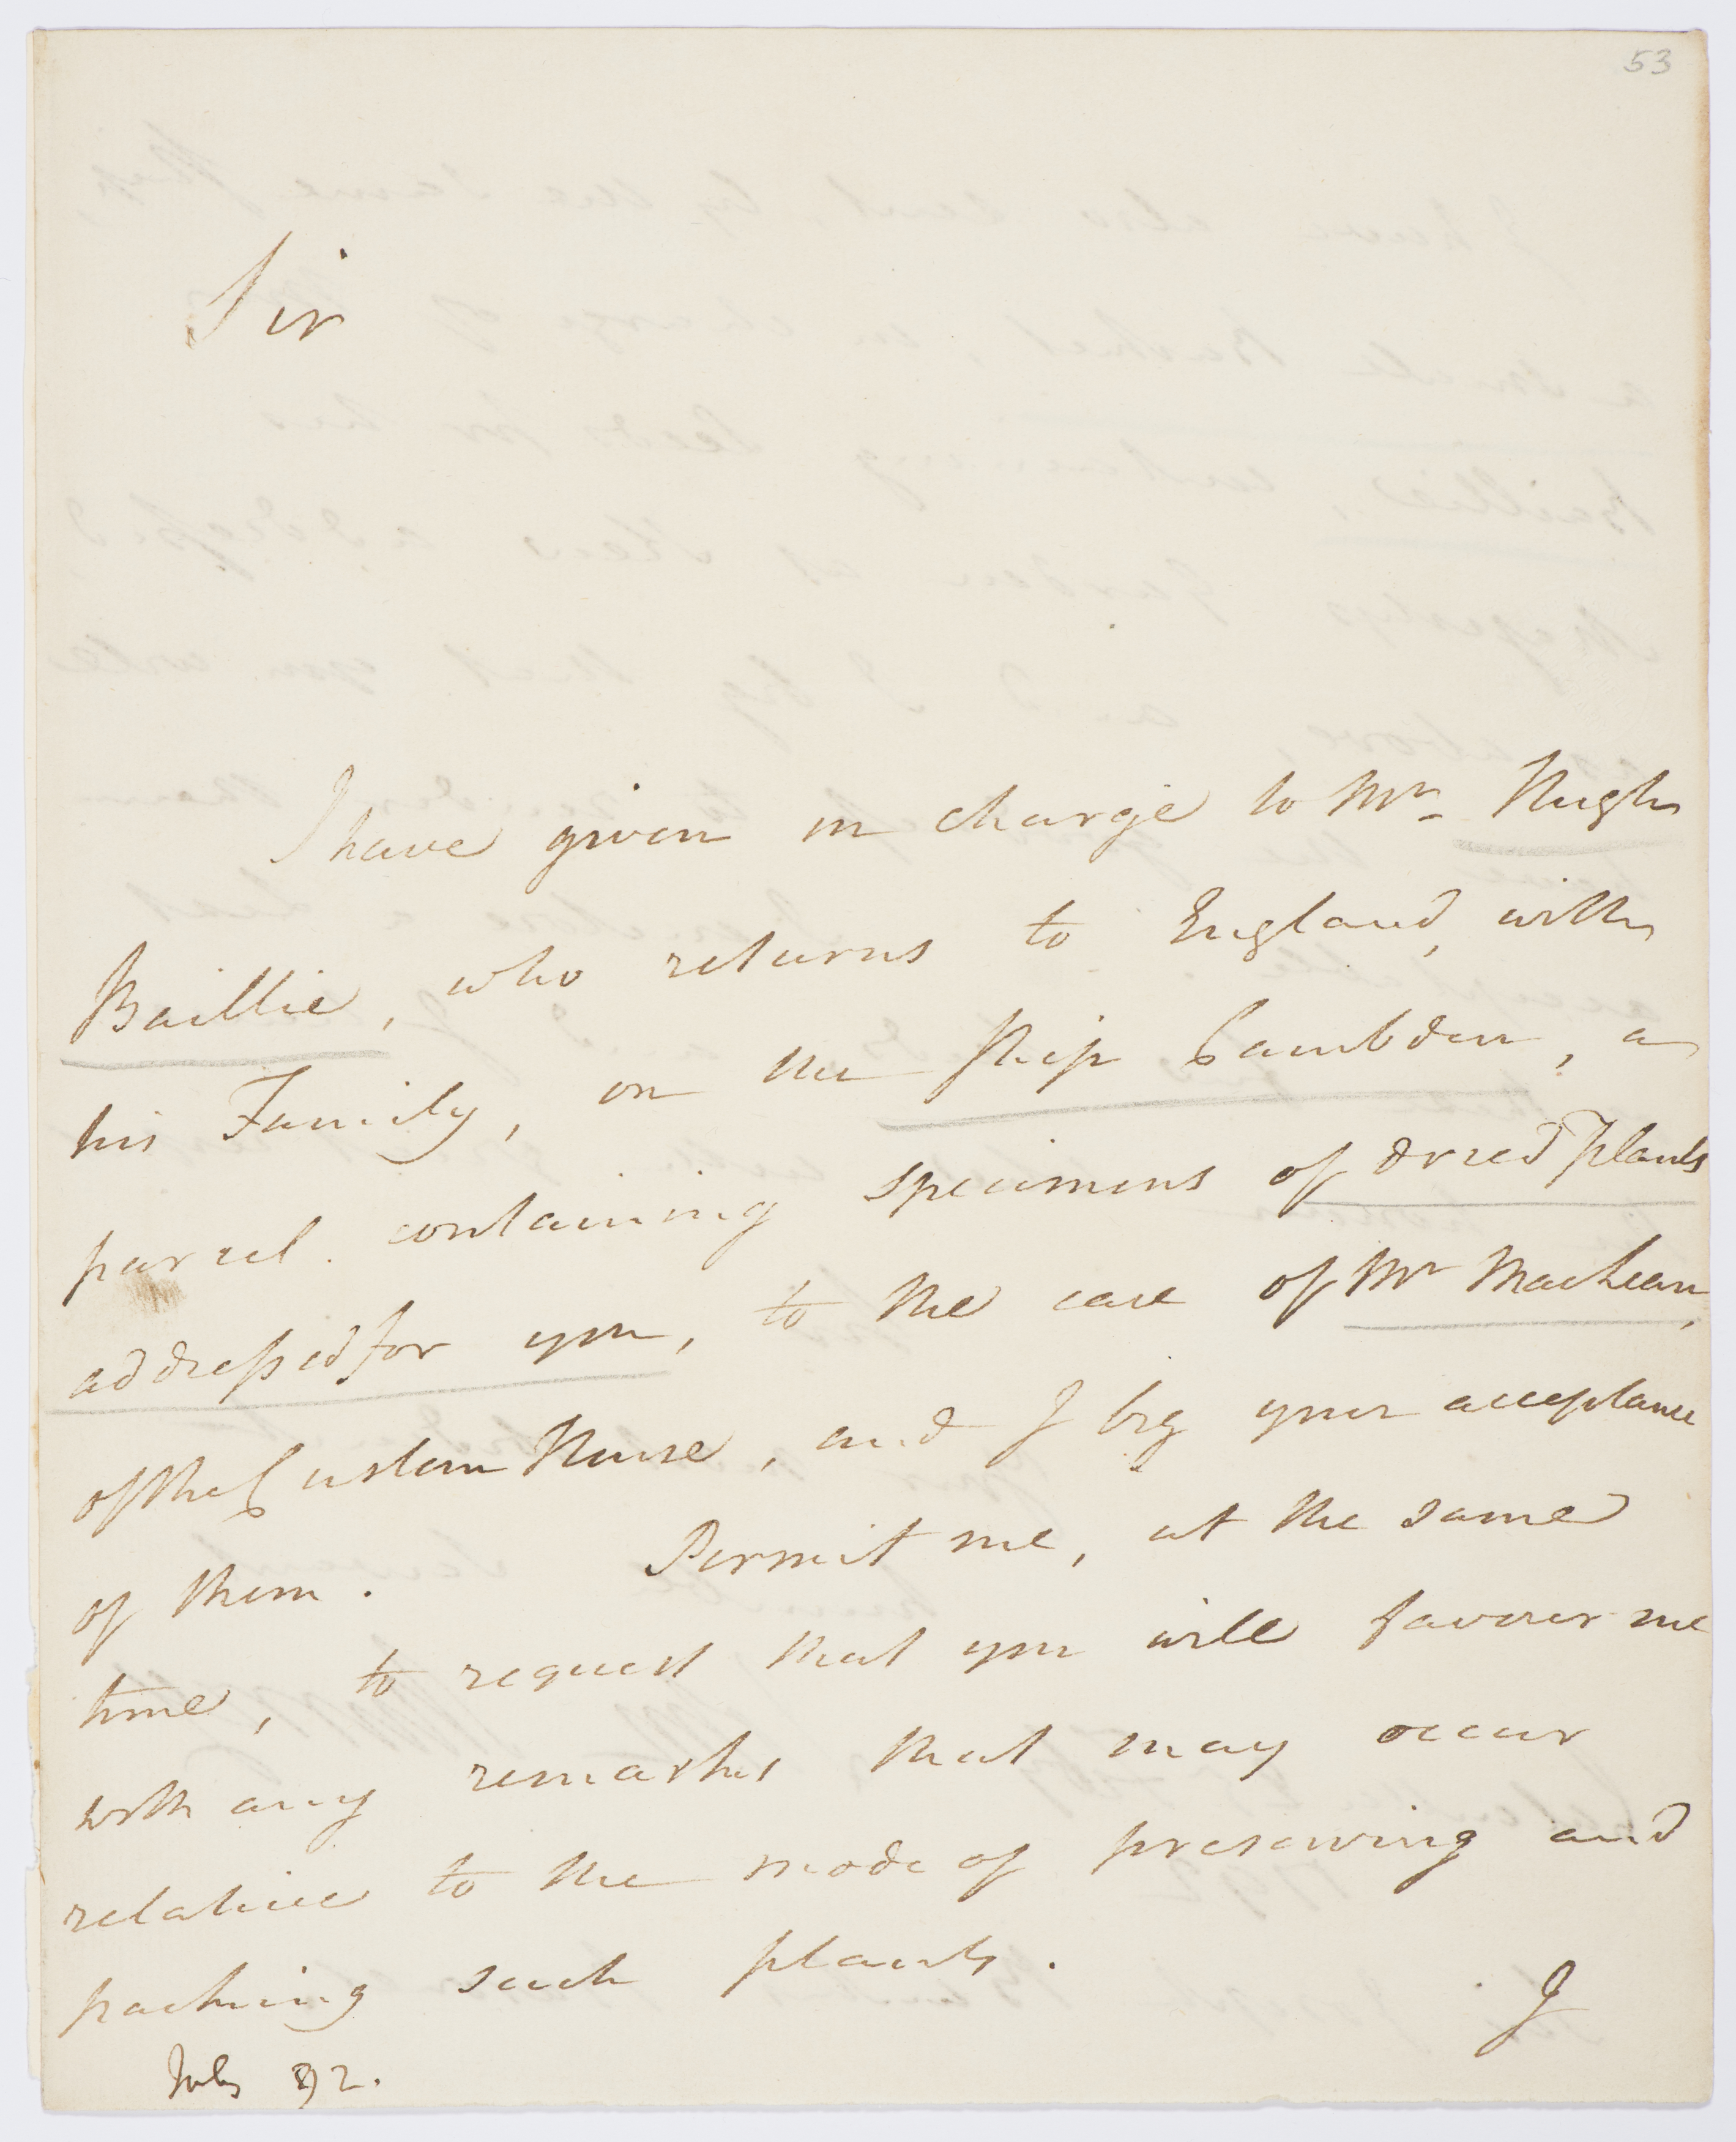 53
Sir
I have given in charge to Mr. Hugh
Baillie, who returns to England, with
his Family, on the Ship Cambden, a
parcel containing specimens of dried Plants
addressed for you, to the care of Mr MacLean,
of the Custom House, and I beg your acceptance
of them. Permit me, at the same
time, to request that you will favour me
with any remarks that may occur
relative to the mode of preserving and
packing such plants.
I
July 92.